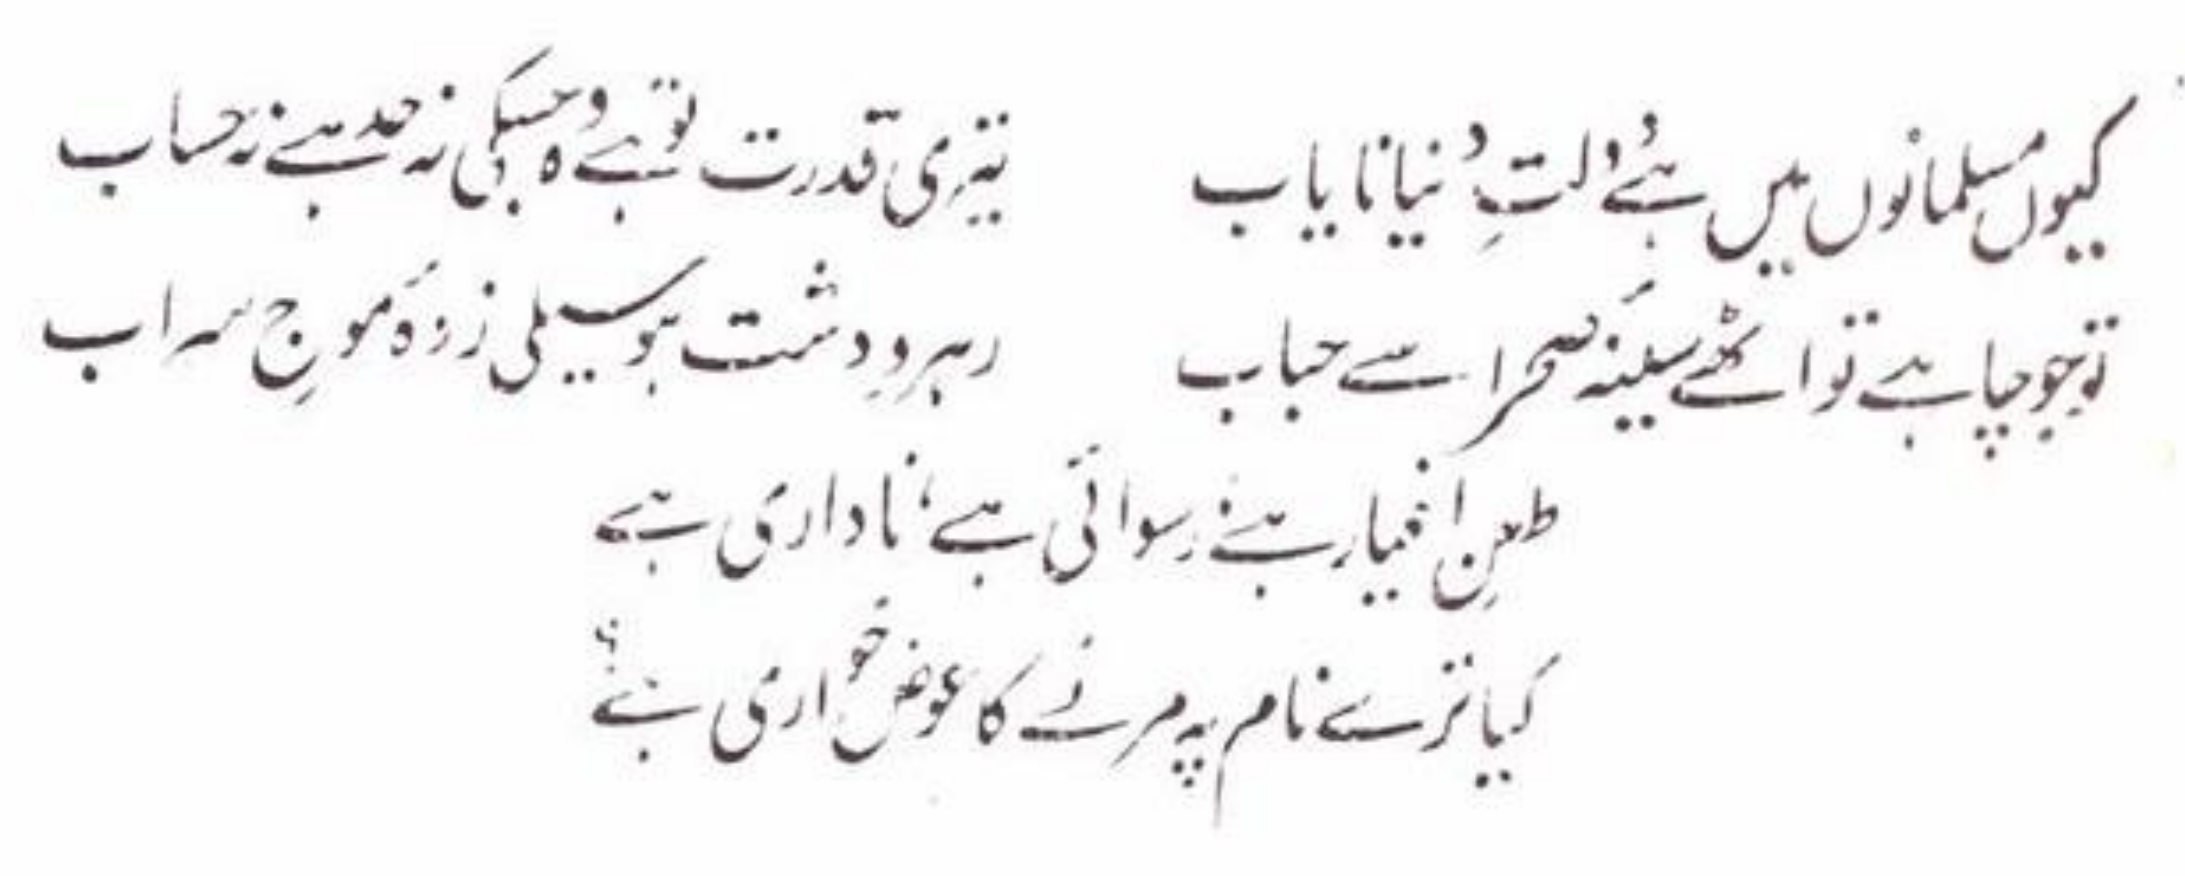 کیوں مسلمانوں میں ہے دولتِ دنیا نایاب
تیری قدرت تو ہے وہ جسکی نہ حد ہے نہ حساب
تو جو چاہے تو اٹھے سینۂ صحرا سے حباب
رہروِ دشت ہو سیلی زدۂ موجِ سراب
طعنِ اغیار ہے، رسوائی ہے، ناداری ہے
کیا ترے نام پہ مرنے کا عوض خواری ہے؟